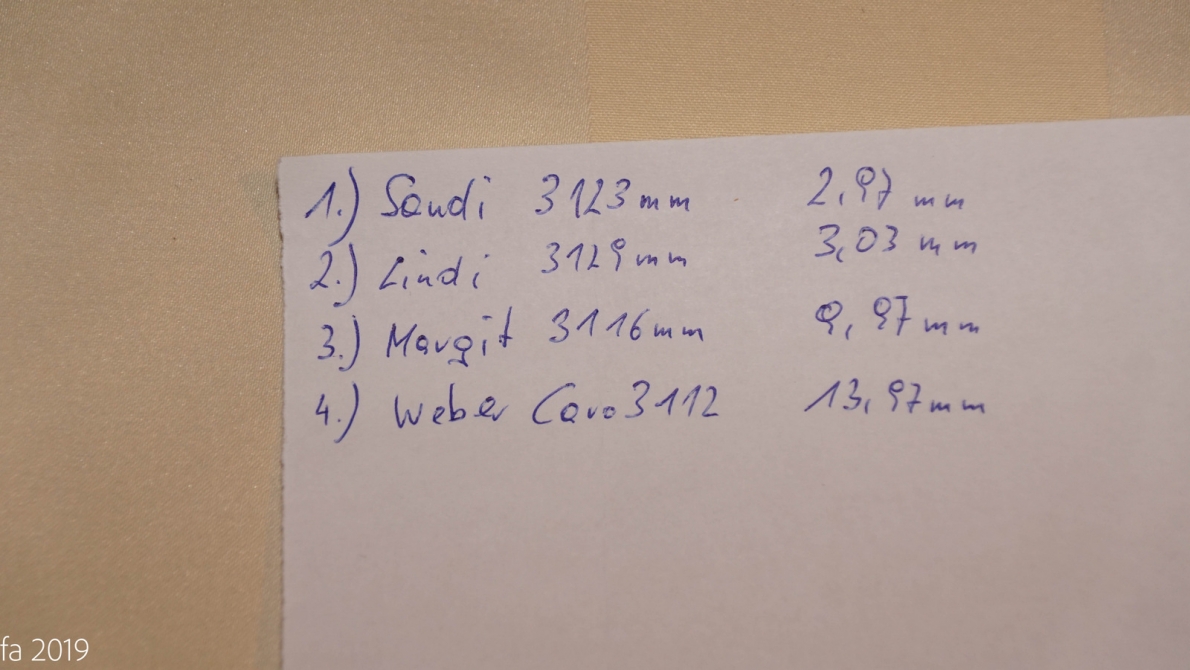 1.) Sandi 3123mm 2,97 mm
2.) Lindi 3129mm 3,03 mm
3.) Margit 3116mm 9,97mm
4.) Weber Caro 3112 13,97mm
fa 2019